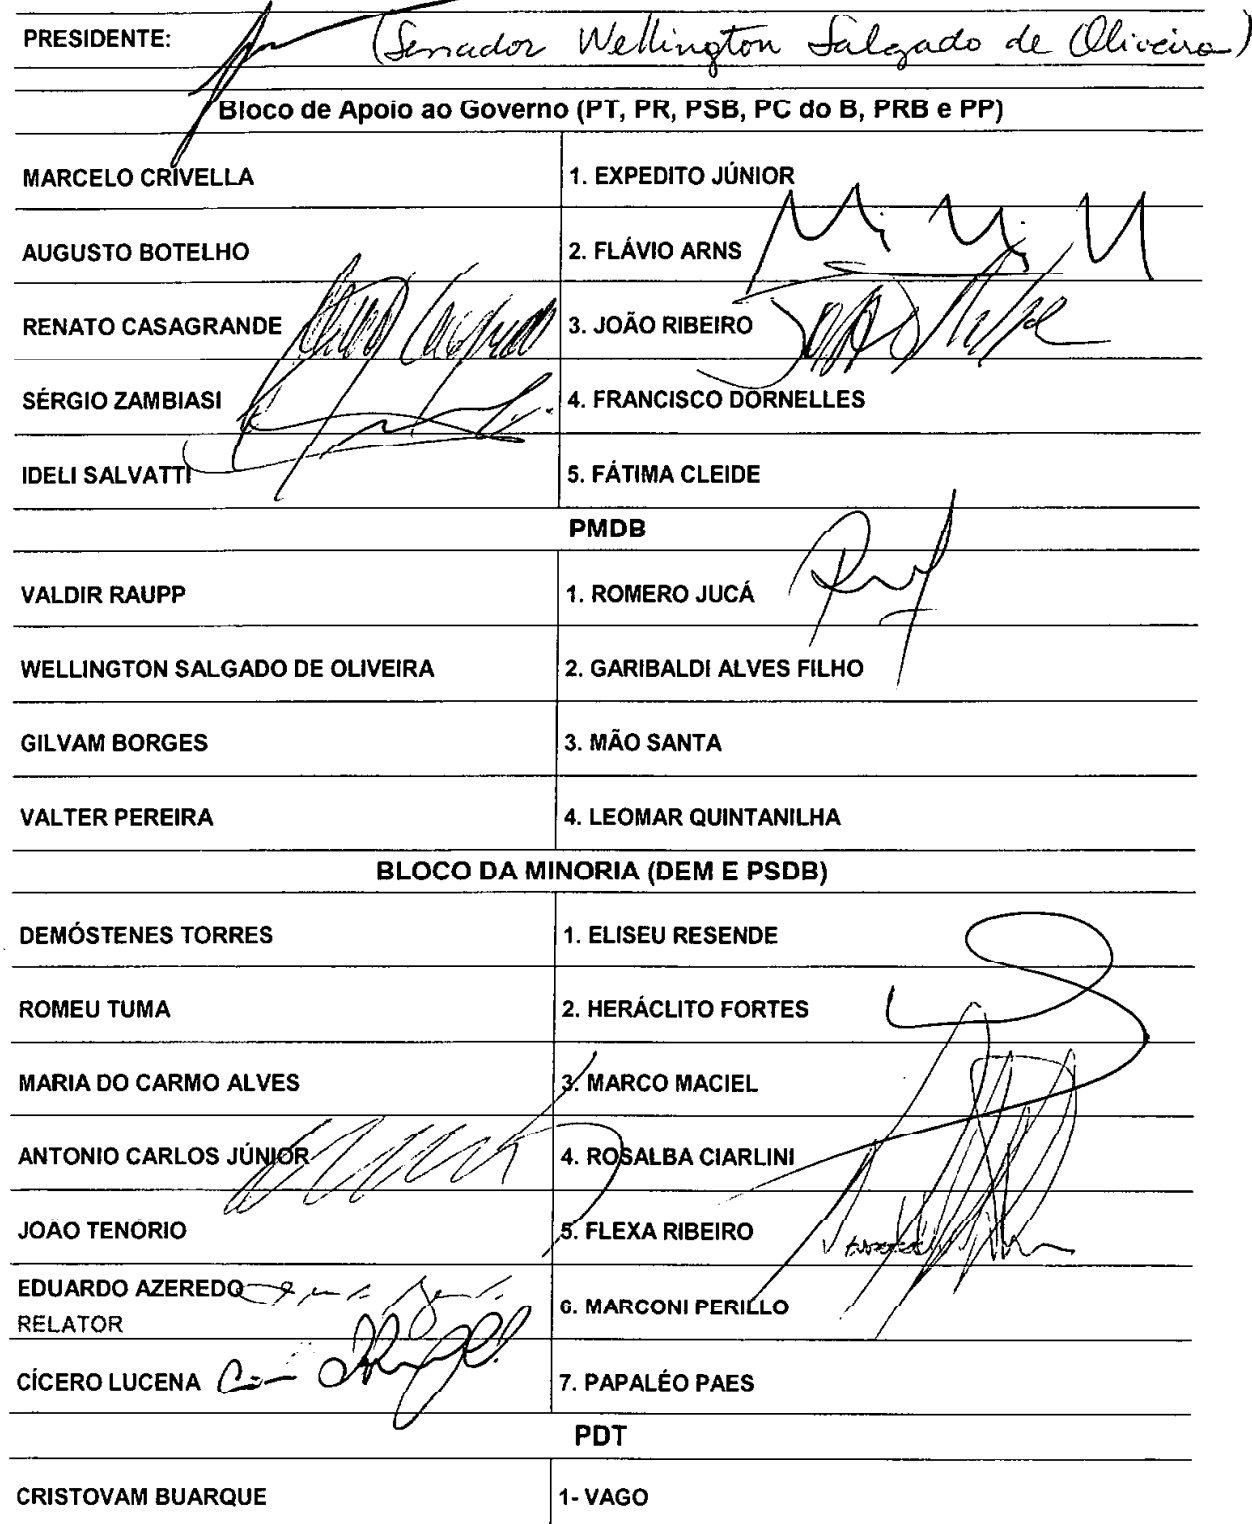 PRESIDENTE: (Senador Wellington Salgado de Oliveira)
Bloco de Apoio ao Governo (PT, PR, PSB, PC do B, PRB e PP)
MARCELO CRIVELLA 1. EXPEDITO JÚNIOR
AUGUSTO BOTELHO 2. FLÁVIO ARNS
RENATO CASAGRANDE 3. JOÃO RIBEIRO
SÉRGIO ZAMBIASI 4. FRANCISCO DORNELLES
IDELI SALVATTI 5. FÁTIMA CLEIDE
PMDB
VALDIR RAUPP 1. ROMERO JUCÁ
WELLINGTON SALGADO DE OLIVEIRA 2. GARIBALDI ALVES FILHO
GILVAM BORGES 3. MÃO SANTA
VALTER PEREIRA 4. LEOMAR QUINTANILHA
BLOCO DA MINORIA (DEM E PSDB)
DEMÓSTENES TORRES 1. ELISEU RESENDE
ROMEU TUMA 2. HERÁCLITO FORTES
MARIA DO CARMO ALVES 3. MARCO MACIEL
ANTONIO CARLOS JÚNIOR 4. ROSALBA CIARLINI
JOÃO TENÓRIO 5. FLEXA RIBEIRO
EDUARDO AZEREDO 6. MARCONI PERILLO
RELATOR
CÍCERO LUCENA 7. PAPALÉO PAES
PDT
CRISTOVAM BUARQUE 1- VAGO